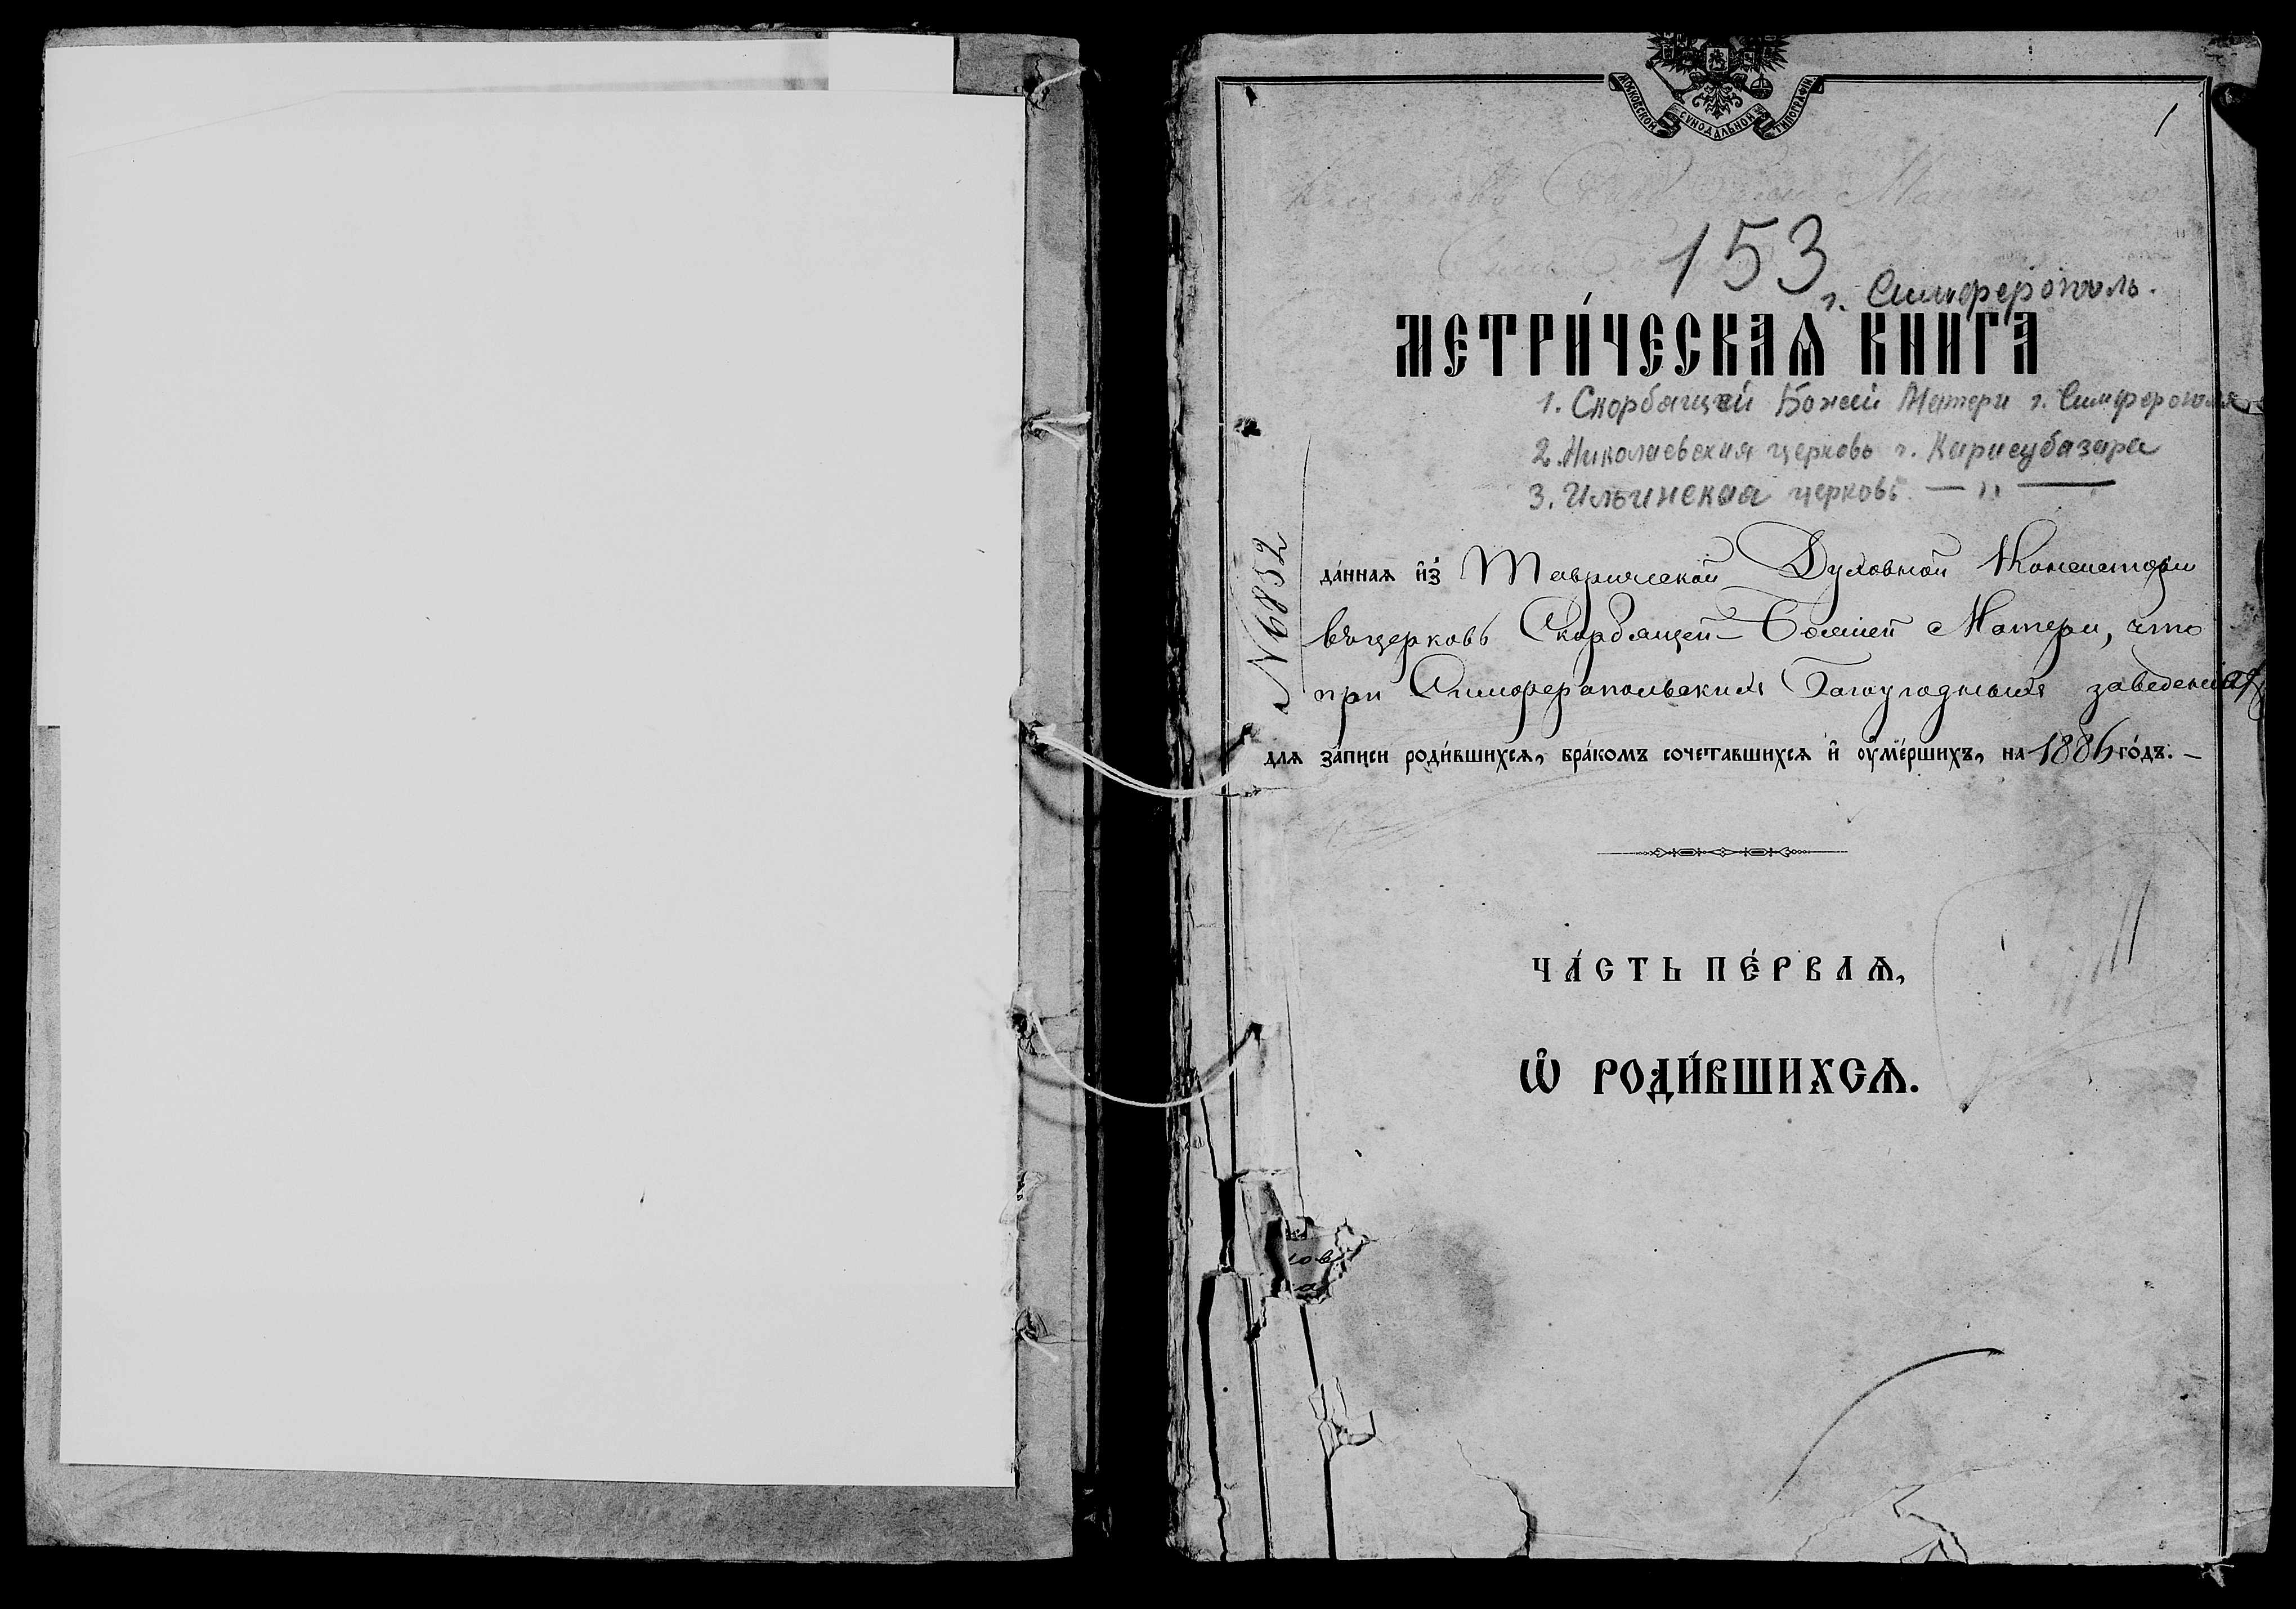 МОСКОВСКОЙ СѴНОДАЛЬНОЙ ТИПОГРАФІИ
1
153
г. Симферополь.
МЕТРИ́ЧЕСКАѦ КНИГА
1. Скорбящей Божей Матери г. Симферополя
2. Николаевская церковь г. Карасубазара
3. Ильинская церковь — " —
№ 6852
да́ннаѧ и҆з̾ Таврической Духовной Консистории
въ церковь Скорбящей Божией Матери, что
при Симферопольских Богоугодных заведениях
длѧ за́писи роди́вшихсѧ, бра́комъ сочетавшихсѧ и҆ ᲂу҆ме́ршихъ, на 1886 го́дъ. —
ЧА́СТЬ ПЕ́РВАѦ,
Ѡ҆ РОДИ́ВШИХСѦ.